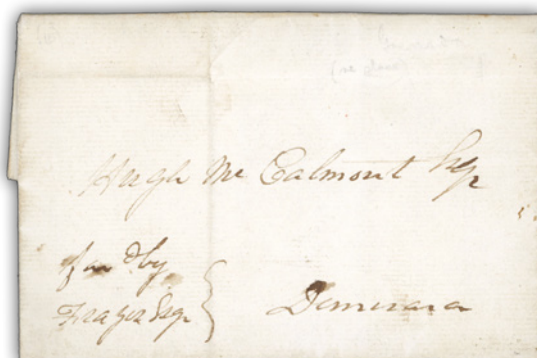 Hugh Mc Calmont Esqr
favd by
Frazer Esqr
Demerara